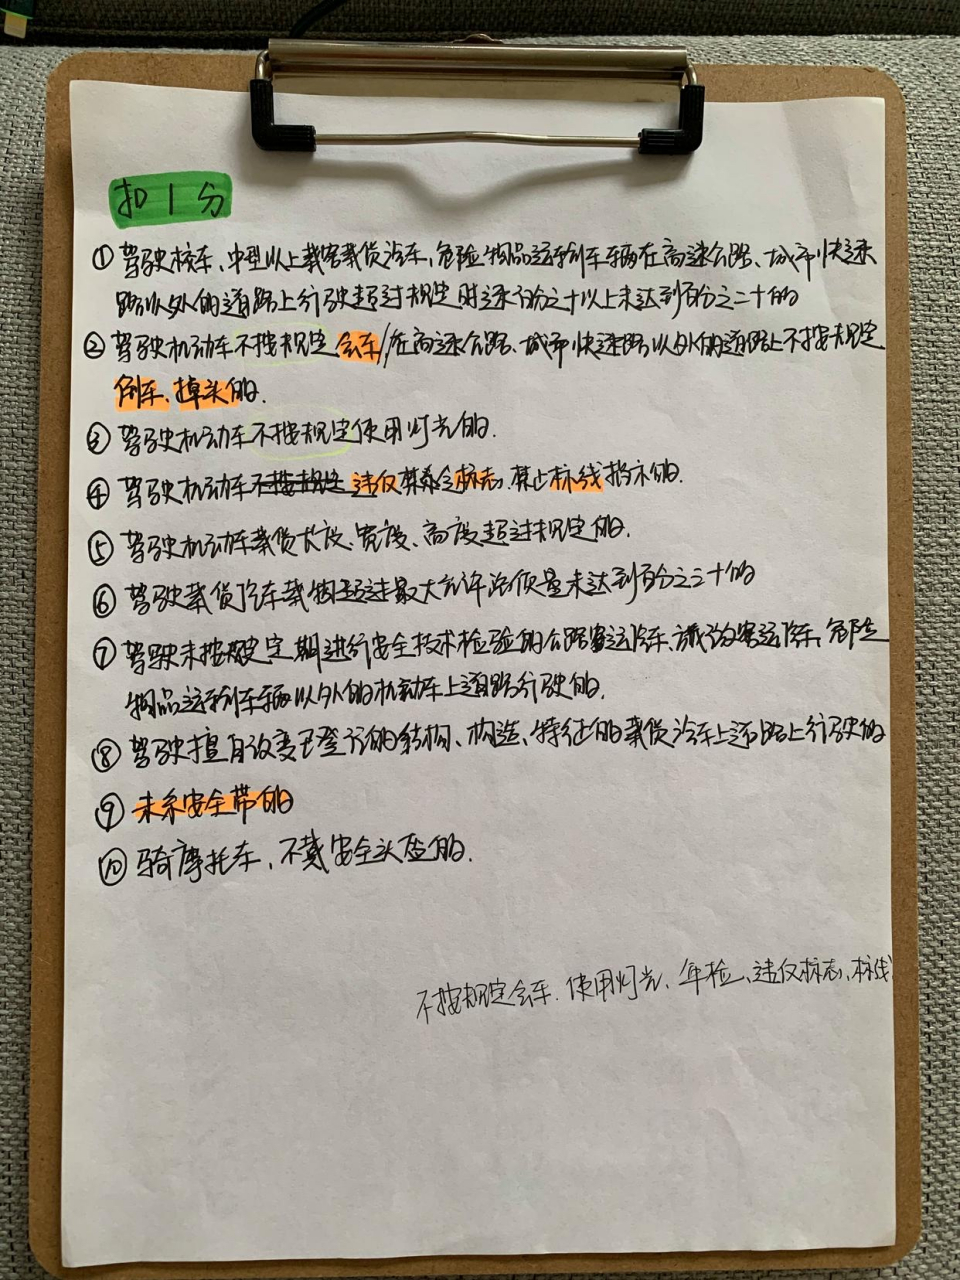 扣1分
① 驾驶校车、中型以上载客载货汽车、危险物品运输车辆在高速公路、城市快速
路以外的道路上行驶超过规定时速百分之十以上未达到百分之二十的
② 驾驶机动车不按规定会车/在高速公路、城市快速路以外的道路上不按规定
倒车、掉头的.
③ 驾驶机动车不按规定使用灯光的.
④ 驾驶机动车不按规定 违反禁令标志、禁止标线指示的.
⑤ 驾驶机动车载货长度、宽度、高度超过规定的.
⑥ 驾驶载货汽车载物超过最大允许总质量未达到百分之三十的
⑦ 驾驶未按规定定期进行安全技术检验的公路客运汽车、旅游客运汽车、危险
物品运输车辆以外的机动车上道路行驶的.
⑧ 驾驶擅自改变已登记的结构、构造、特征的载货汽车上道路上行驶的
⑨ 未系安全带的
⑩ 骑摩托车、不戴安全头盔的.
不按规定会车.使用灯光、年检、违反标志、标线